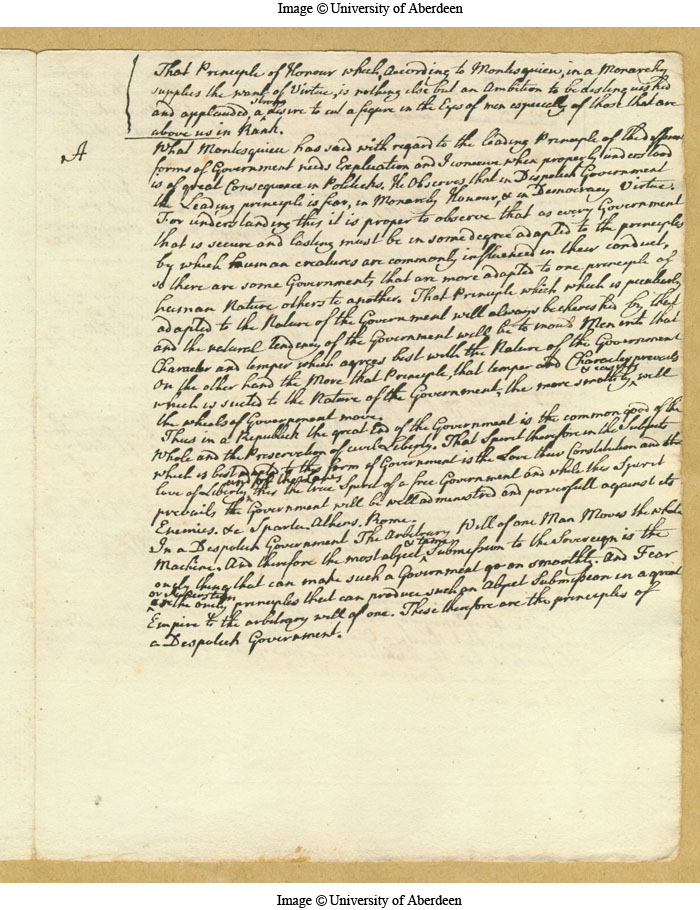 Image © University of Aberdeen
That Principle of Honour which, According to Montesquieu, in a Monarchy
supplies the want of Virtue, is nothing else but an Ambition to be destinguished
strong
and applauded, a desire to cut a figure in the Eyes of men especially of those that are
above us in Rank.
A
What Montesquieu has said with regard to the leading Principle of the different
forms of Government needs Explication and I conceive when properly understood
is of great Consequence in Politicks. He Observes that in Despotick Government
the Leading principle is fear, in Monarchy Honour, & in Democracy Virtue.
For understanding this it is proper to observe that as every Government
that is secure and lasting must be in some degree adapted to the principles
by which human creatures are commonly influenced in their conduct,
so there are some Governments that are more adapted to one principle of
human Nature others to another. That Principle which which is peculiarly
adapted to the Nature of the Government will always be cherished by that
and the natural Tendency of the Government will be to mould Men into that
Character and temper which agrees best with the Nature of the Government
On the other hand the More that Principle, that temper and Character prevails
& easily
which is suited to the Nature of the Government, the more smoothly will
the wheels of Government move.
Thus in a Republick the great End of the Government is the common good of the
Whole and the Preservation of civil Liberty. That Spirit therefore in the Subjects
which is best adapted to this form of Government is the Love their Constitution and the
and of the Laws
love of Liberty, this the true Spirit of a free Government and while this Spirit
prevails the Government will be well administred and powerfull against its
Enemies. &c Sparta. Athens. Rome.
In a Despotick Government The Arbitrary Will of one Man Moves the whole
Machine. And therefore the most abject Submission to the Sovereign is the
onely thing that can make such a Government go on smoothly. And Fear
or Superstition
are the onely principles that can produce such an Abject Submission in a great
Empire to the arbitrary will of one. These therefore are the principles of
a Despotick Government.
Image © University of Aberdeen